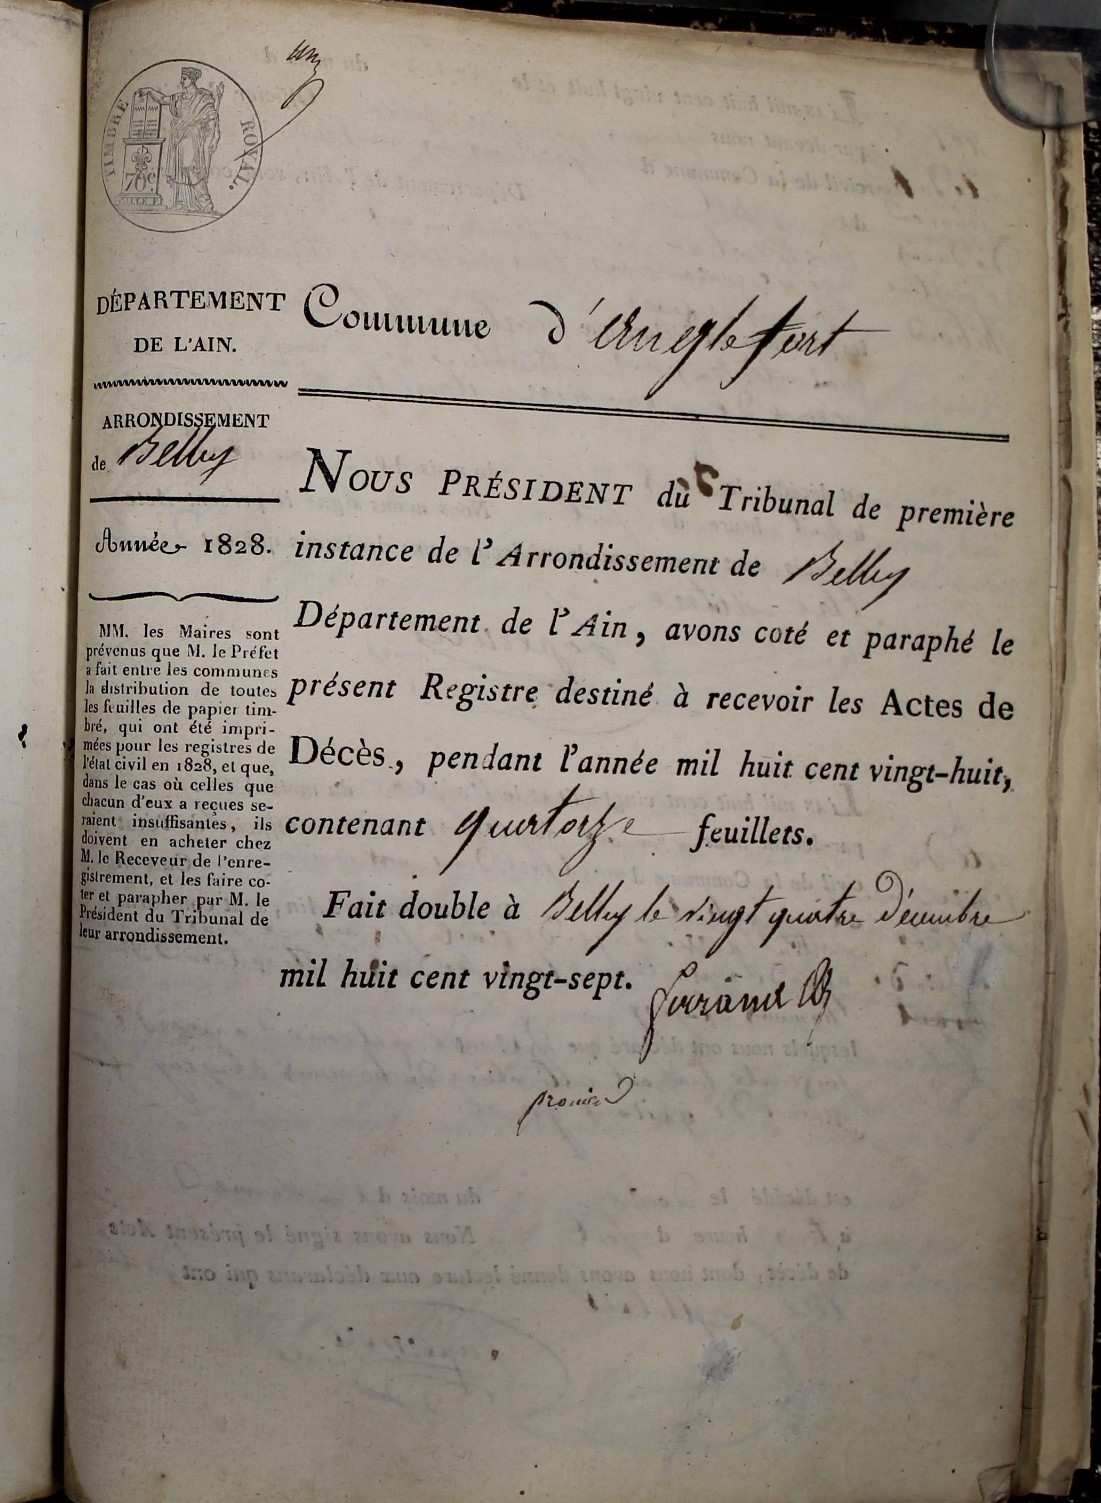 TIMBRE ROYAL.
70 c.
DÉPARTEMENT
DE L'AIN.
ARRONDISSEMENT
de Belley
Année 1828.
MM. les Maires sont
prévenus que M. le Préfet
a fait entre les communes
la distribution de toutes
les feuilles de papier tim-
bré, qui ont été impri-
mées pour les registres de
l'état civil en 1828, et que,
dans le cas où celles que
chacun d'eux a reçues se-
raient insuffisantes, ils
doivent en acheter chez
M. le Receveur de l'enre-
gistrement, et les faire co-
ter et parapher par M. le
Président du Tribunal de
leur arrondissement.
Commune d'anglefort
NOUS PRÉSIDENT du Tribunal de première
instance de l'Arrondissement de Belley
Département de l'Ain, avons coté et paraphé le
présent Registre destiné à recevoir les Actes de
Décès, pendant l'année mil huit cent vingt-huit,
contenant quatorze feuillets.
Fait double à Belley le vingt quatre Décembre
mil huit cent vingt-sept.